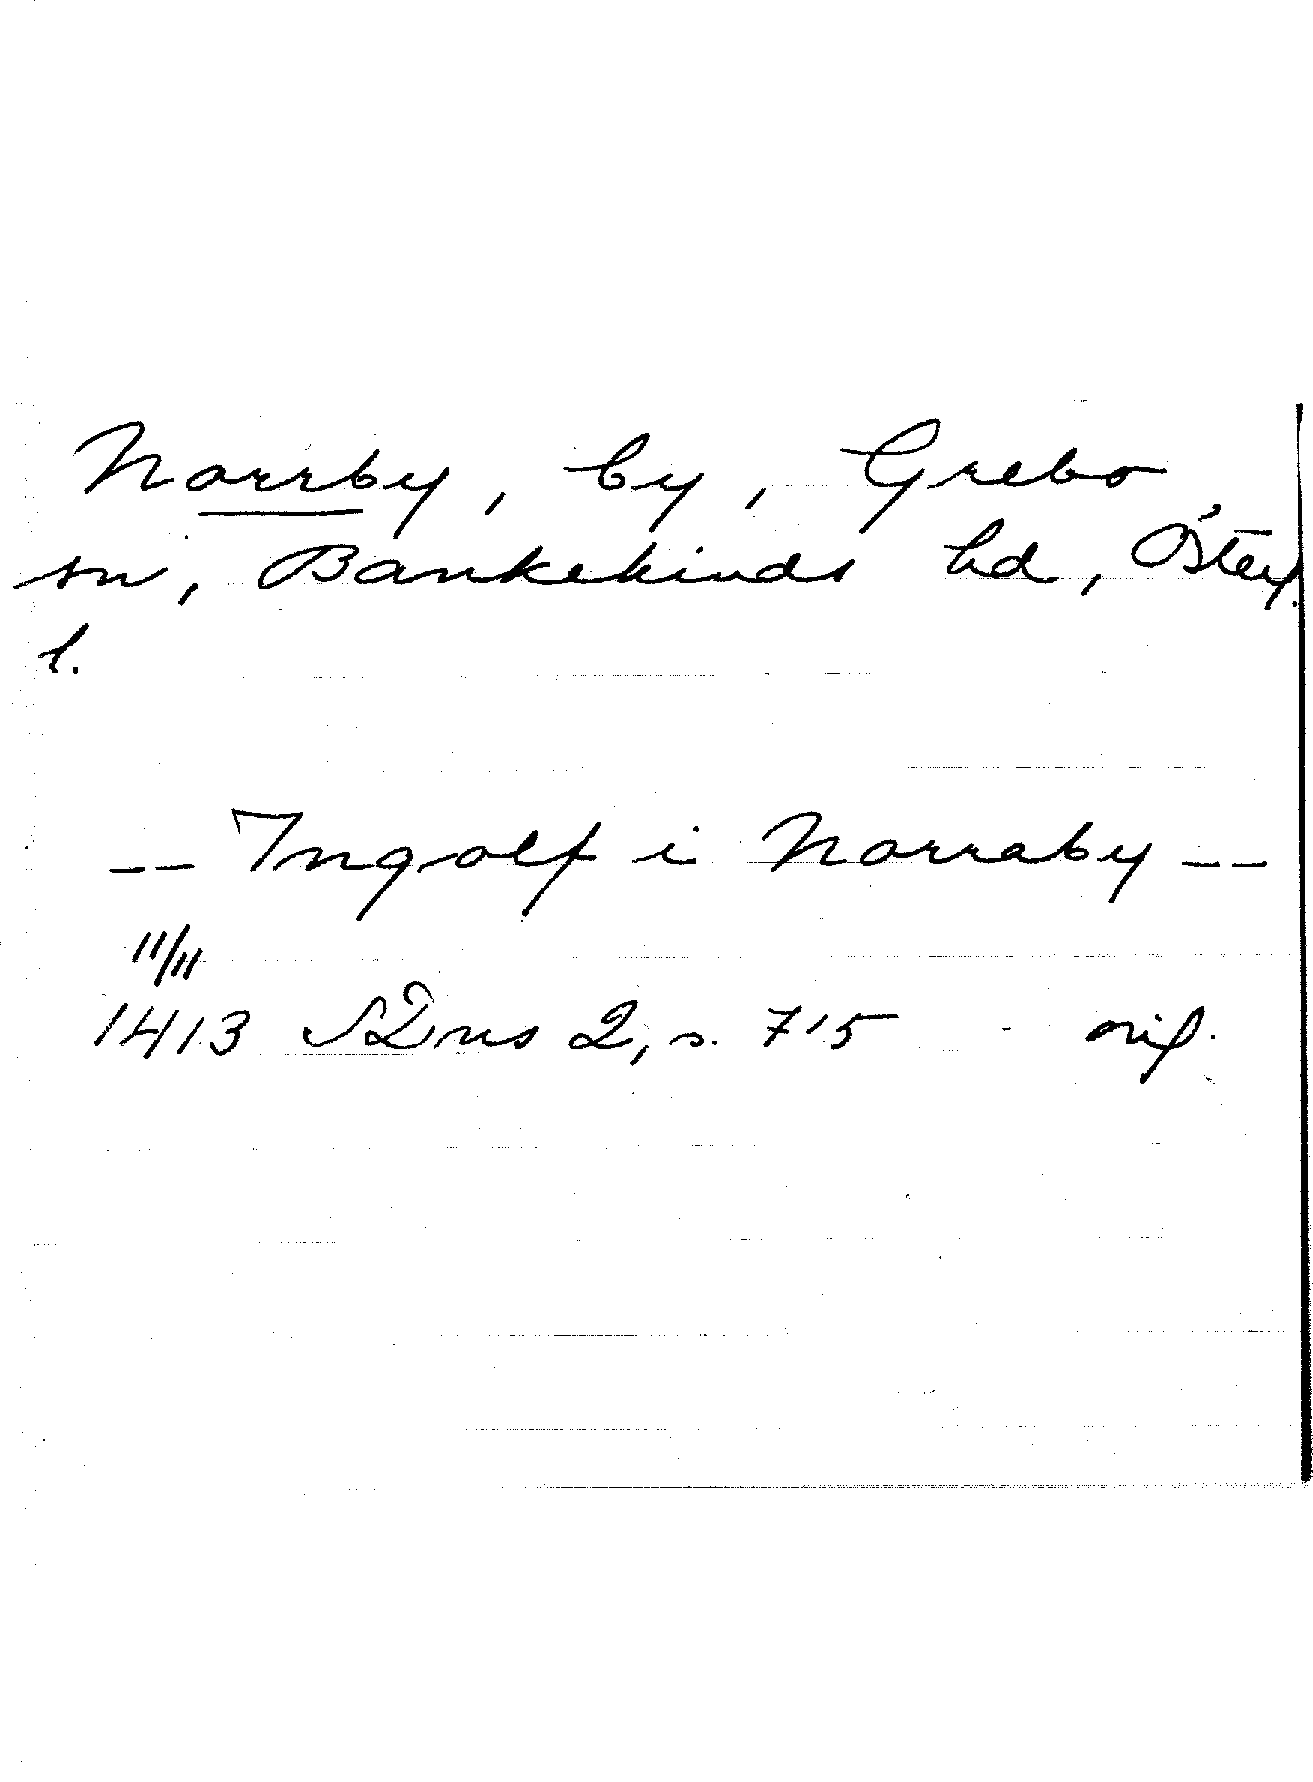 Norrby, by, Grebo
sn, Bankekinds hd, Österg.
l.
-- Ingolf i Norraby --
11/11
1413 SDns 2, s. 715 orig.